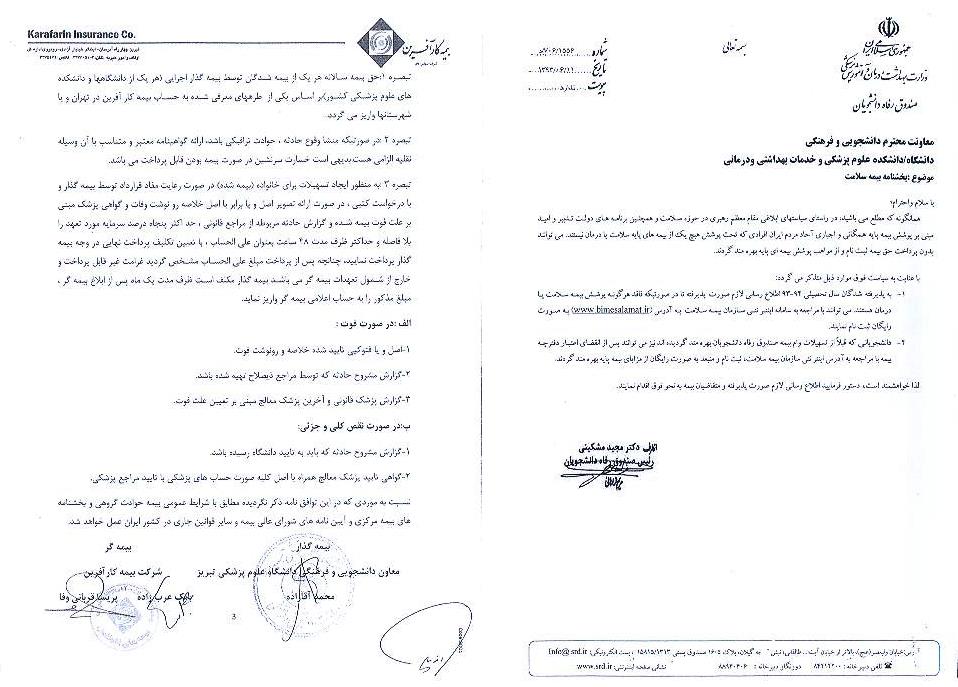 بسمه تعالی
جمهوری اسلامی ایران
وزارت بهداشت درمان و آموزش پزشکی
صندوق رفاه دانشجویان
شماره
تاریخ ۱۳۹۳/۰۶/۱۱
پیوست ندارد
معاونت محترم دانشجویی و فرهنگی
دانشگاه/دانشکده علوم پزشکی و خدمات بهداشتی ودرمانی
موضوع :بخشنامه بیمه سلامت
با سلام واحترام؛
همانگونه که مطلع می باشید، در راستای سیاستهای ابلاغی مقام معظم رهبری در حوزه سلامت و همچنین برنامه های دولت تدبیر و امید
مبنی بر پوشش بیمه پایه همگانی و اجباری آحاد مردم ایران افرادی که تحت پوشش هیچ یک از بیمه های پایه سلامت یا درمان نیستند، می توانند
بدون پرداخت حق بیمه ثبت نام و از مواهب پوشش بیمه ای پایه بهره مند گردند.
با عنایت به سیاست فوق موارد ذیل متذکر می گردد:
۱- به پذیرفته شدگان سال تحصیلی ۹۴-۹۳ اطلاع رسانی لازم صورت پذیرفته تا در صورتیکه فاقد هرگونه پوشش بیمه سلامت یا
درمان هستند، می توانند با مراجعه به سامانه اینترنتی سازمان بیمه سلامت به آدرس (www.bimesalamat.ir) به صورت
رایگان ثبت نام نمایند.
۲- دانشجویانی که قبلاً از تسهیلات وام بیمه صندوق رفاه دانشجویان بهره مند گردیده اند نیز می توانند پس از انقضای اعتبار دفترچه
بیمه با مراجعه به آدرس اینترنتی سازمان بیمه سلامت، ثبت نام و متبعد به صورت رایگان از مزایای بیمه پایه بهره مند گردند.
لذا خواهشمند است، دستور فرمایید اطلاع رسانی لازم صورت پذیرفته و متقاضیان بیمه به نحو فوق اقدام نمایند.
دکتر مجید مشکینی
رئیس صندوق رفاه دانشجویان
آدرس:خیابان ولیعصر(عج)، بالاتر از خیابان آیت... طالقانی، نبش به گیلان، پلاک ۱۶۰۵ صندوق پستی ۱۵۸۱۵/۱۳۱۳ ، پست الکترونیکی: Info@ srd.ir
تلفن دبیرخانه : دورنگار دبیرخانه : نشانی صفحه اینترنتی: www.srd.ir
Karafarin Insurance Co.
بیمه کارآفرین
تبصره ۱:حق بیمه سالانه هر یک از بیمه شدگان توسط بیمه گذار اجرایی (هر یک از دانشگاهها و دانشکده
های علوم پزشکی کشور)بر اساس یکی از طرحهای معرفی شده به حساب بیمه کار آفرین در تهران و یا
شهرستانها واریز می گردد.
تبصره ۲: در صورتیکه منشا وقوع حادثه ، حوادث ترافیکی باشد، ارائه گواهینامه معتبر و متناسب با آن وسیله
نقلیه الزامی هست.بدیهی است خسارت سرنشین در صورت بیمه بودن قابل پرداخت می باشد.
تبصره ۳ به منظور ایجاد تسهیلات برای خانواده (بیمه شده) در صورت رعایت مفاد قرارداد توسط بیمه گذار و
با درخواست کتبی ، در صورت ارائه تصویر اصل و یا برابر با اصل خلاصه رو نوشت وفات و گواهی پزشک مبنی
بر علت فوت بیمه شده و گزارش حادثه مربوطه از مراجع قانونی ، حد اکثر پنجاه درصد سرمایه مورد تعهد را
بلا فاصله و حداکثر ظرف مدت ۴۸ ساعت بعنوان علی الحساب ، با تعیین تکلیف پرداخت نهایی در وجه بیمه
گذار پرداخت نمایید، چنانچه پس از پرداخت مبلغ علی الحساب مشخص گردید غرامت غیر قابل پرداخت و
خارج از شمول تعهدات بیمه گر می باشد بیمه گذار مکلف است ظرف مدت یک ماه پس از ابلاغ بیمه گر ،
مبلغ مذکور را به حساب اعلامی بیمه گر واریز نماید.
الف :در صورت فوت :
۱-اصل و یا فتوکپی تایید شده خلاصه و رونوشت فوت.
۲-گزارش مشروح حادثه که توسط مراجع ذیصلاح تهیه شده باشد.
۳-گزارش پزشک قانونی و آخرین پزشک معالج مبنی بر تعیین علت فوت.
ب:در صورت نقص کلی و جزئی:
۱-گزارش مشروح حادثه که باید به تایید دانشگاه رسیده باشد.
۲-گواهی تایید پزشک معالج همراه با اصل کلیه صورت حساب های پزشکی با تایید مراجع پزشکی.
نسبت به موردی که در این توافق نامه ذکر نگردیده مطابق با شرایط عمومی بیمه حوادث گروهی و بخشنامه
های بیمه مرکزی و آیین نامه های شورای عالی بیمه و سایر قوانین جاری در کشور ایران عمل خواهد شد.
بیمه گذار بیمه گر
معاون دانشجویی و فرهنگی دانشگاه علوم پزشکی تبریز شرکت بیمه کار آفرین
محمد آقازاده بابک عرب زاده پریسا قربانی وفا
3